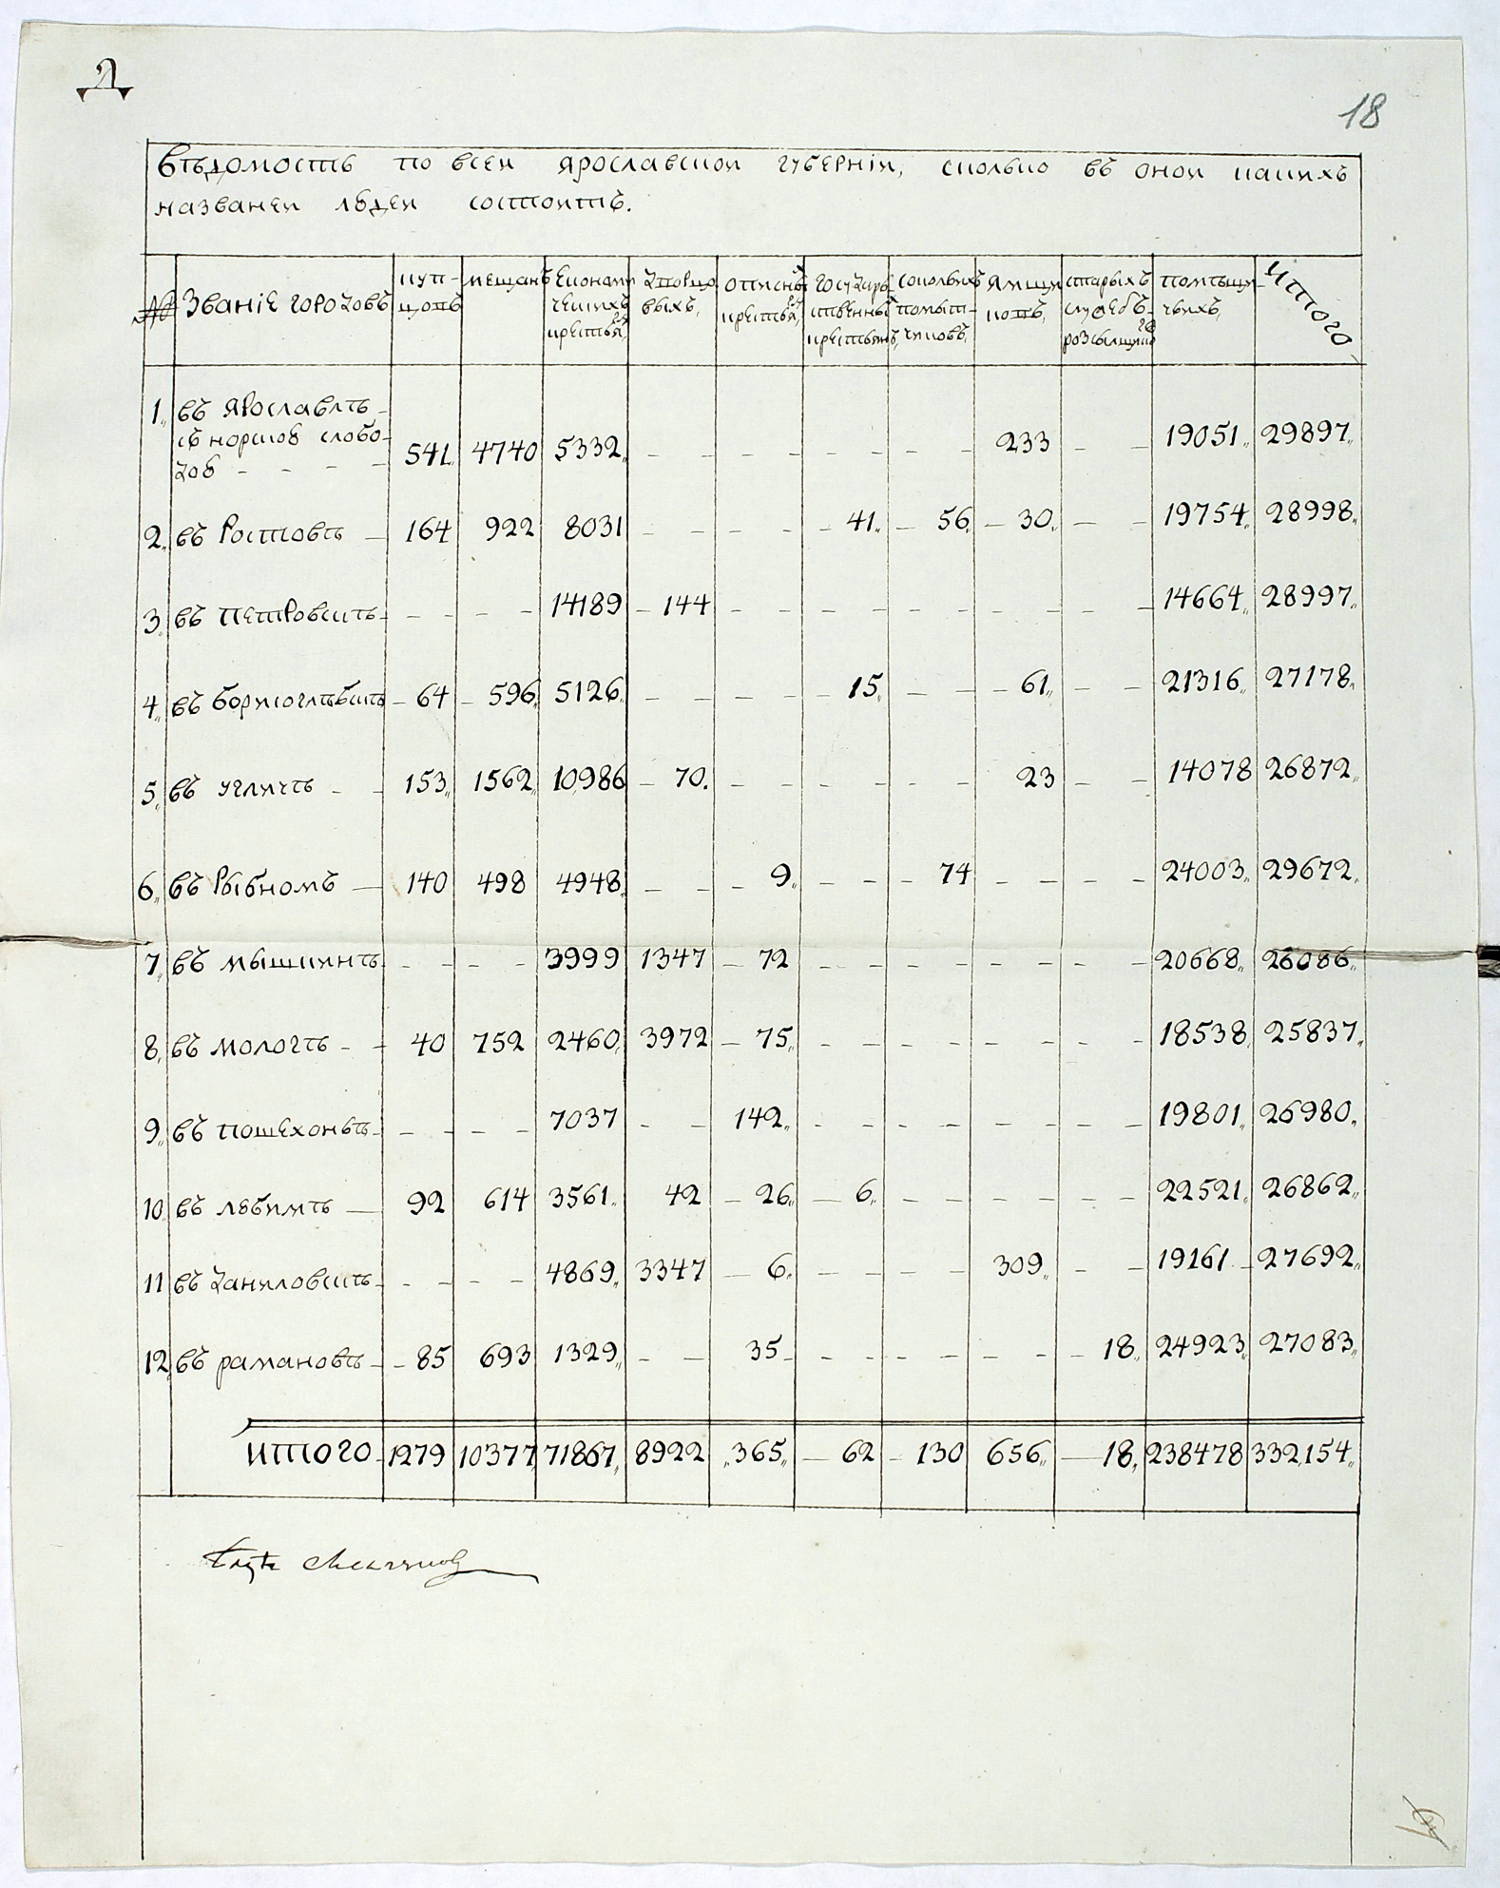 Д
18
Вѣдомость по всей Ярославской губерніи, сколько въ оной какихъ
названей людей состоитъ.
№ Званіе городовъ куп-цовъ мещанъ Економическихъ крестьянъ дворцовыхъ, отписныхъ крестьянъ, Государственныхъ крестьянъ, сокольихъ помытчиковъ, Ямщиковъ, старыхъ служебъ розсыльщиковъ помѣщичьихъ, Итого
1,, въ Ярославлѣ
съ норскою слобо-
дою - - - - 541 4740 5332,, - - - - - - - - 233 - - 19051,, 29897,,
2,, въ Ростовѣ — 164 922 8031 - - - - - 41,, - 56,, - 30,, - - 19754,, 28998,,
3,, въ Петровскѣ - - - - - 14189 - 144 - - - - - - - - - - 14664,, 28997,,
4,, въ борисоглѣбскѣ - 64 - 596,, 5126,, - - - - - 15,, - - - 61,, - - 21316,, 27178,,
5,, въ угличѣ - - 153,, 1562,, 10986 - 70. - - - - - - 23 - - 14078 26872,,
6,, въ Рыбномъ — 140 498 4948,, - - - 9,, - - - 74 - - - - 24003,, 29672,,
7,, въ мышкинѣ - - - - 3999 1347 - 72 - - - - - - - - 20668,, 26086,,
8,, въ мологѣ - - 40 752 2460,, 3972 - 75,, - - - - - - - - 18538,, 25837,,
9,, въ пошехоньѣ - - - - - 7037 - - 142,, - - - - - - - - 19801,, 26980,,
10,, въ любимѣ — 92 614 3561,, 42 - 26,, - 6,, - - - - - - 22521,, 26862,,
11 въ даниловскѣ - - - - - 4869,, 3347 - 6,, - - - - 309,, - - 19161 - 27692,,
12 въ рамановѣ - - 85 693 1329,, - - 35 - - - - - - - - 18,, 24923,, 27083,,
Итого - 1279 10377 71867,, 8922 ,,365,, - 62 - 130 656,, - 18,, 238478 332,154,,